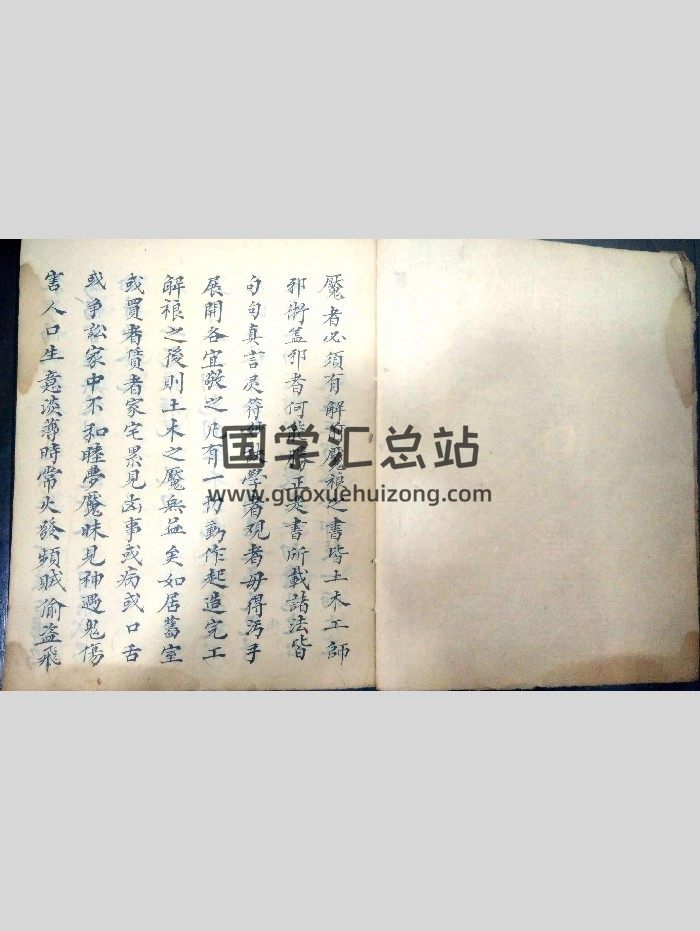 魘者必須有解前魘禳之書皆土木工師
邪術盖邪者何能勝正是書所載諸法皆
句句真言灵符秘訣學者观者毋得污手
展開各宜敬之凡有一切動作起造完工
解禳之後則土木之魘無益矣如居舊室
或買者賃者家宅累見凶事或病或口舌
或争訟家中不和睦夢魘昧見神遇鬼傷
害人口生意淡薄時常火發頻賊偷盗飛
国学汇总站
www.guoxuehuizong.com